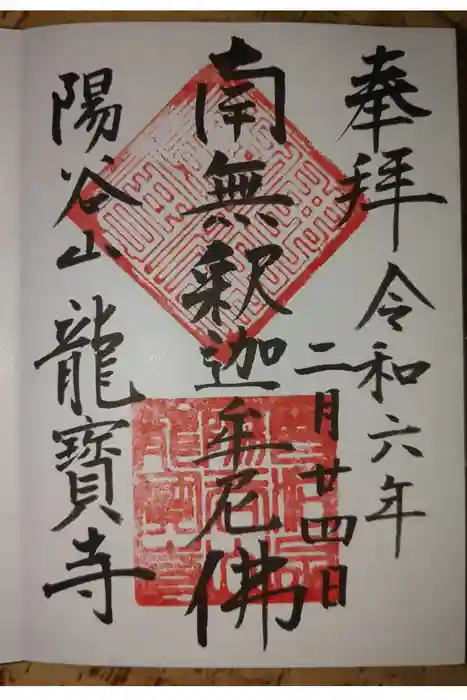 奉拝 令和六年
二月廿四日
南無釈迦牟尼佛
陽谷山 龍寶寺